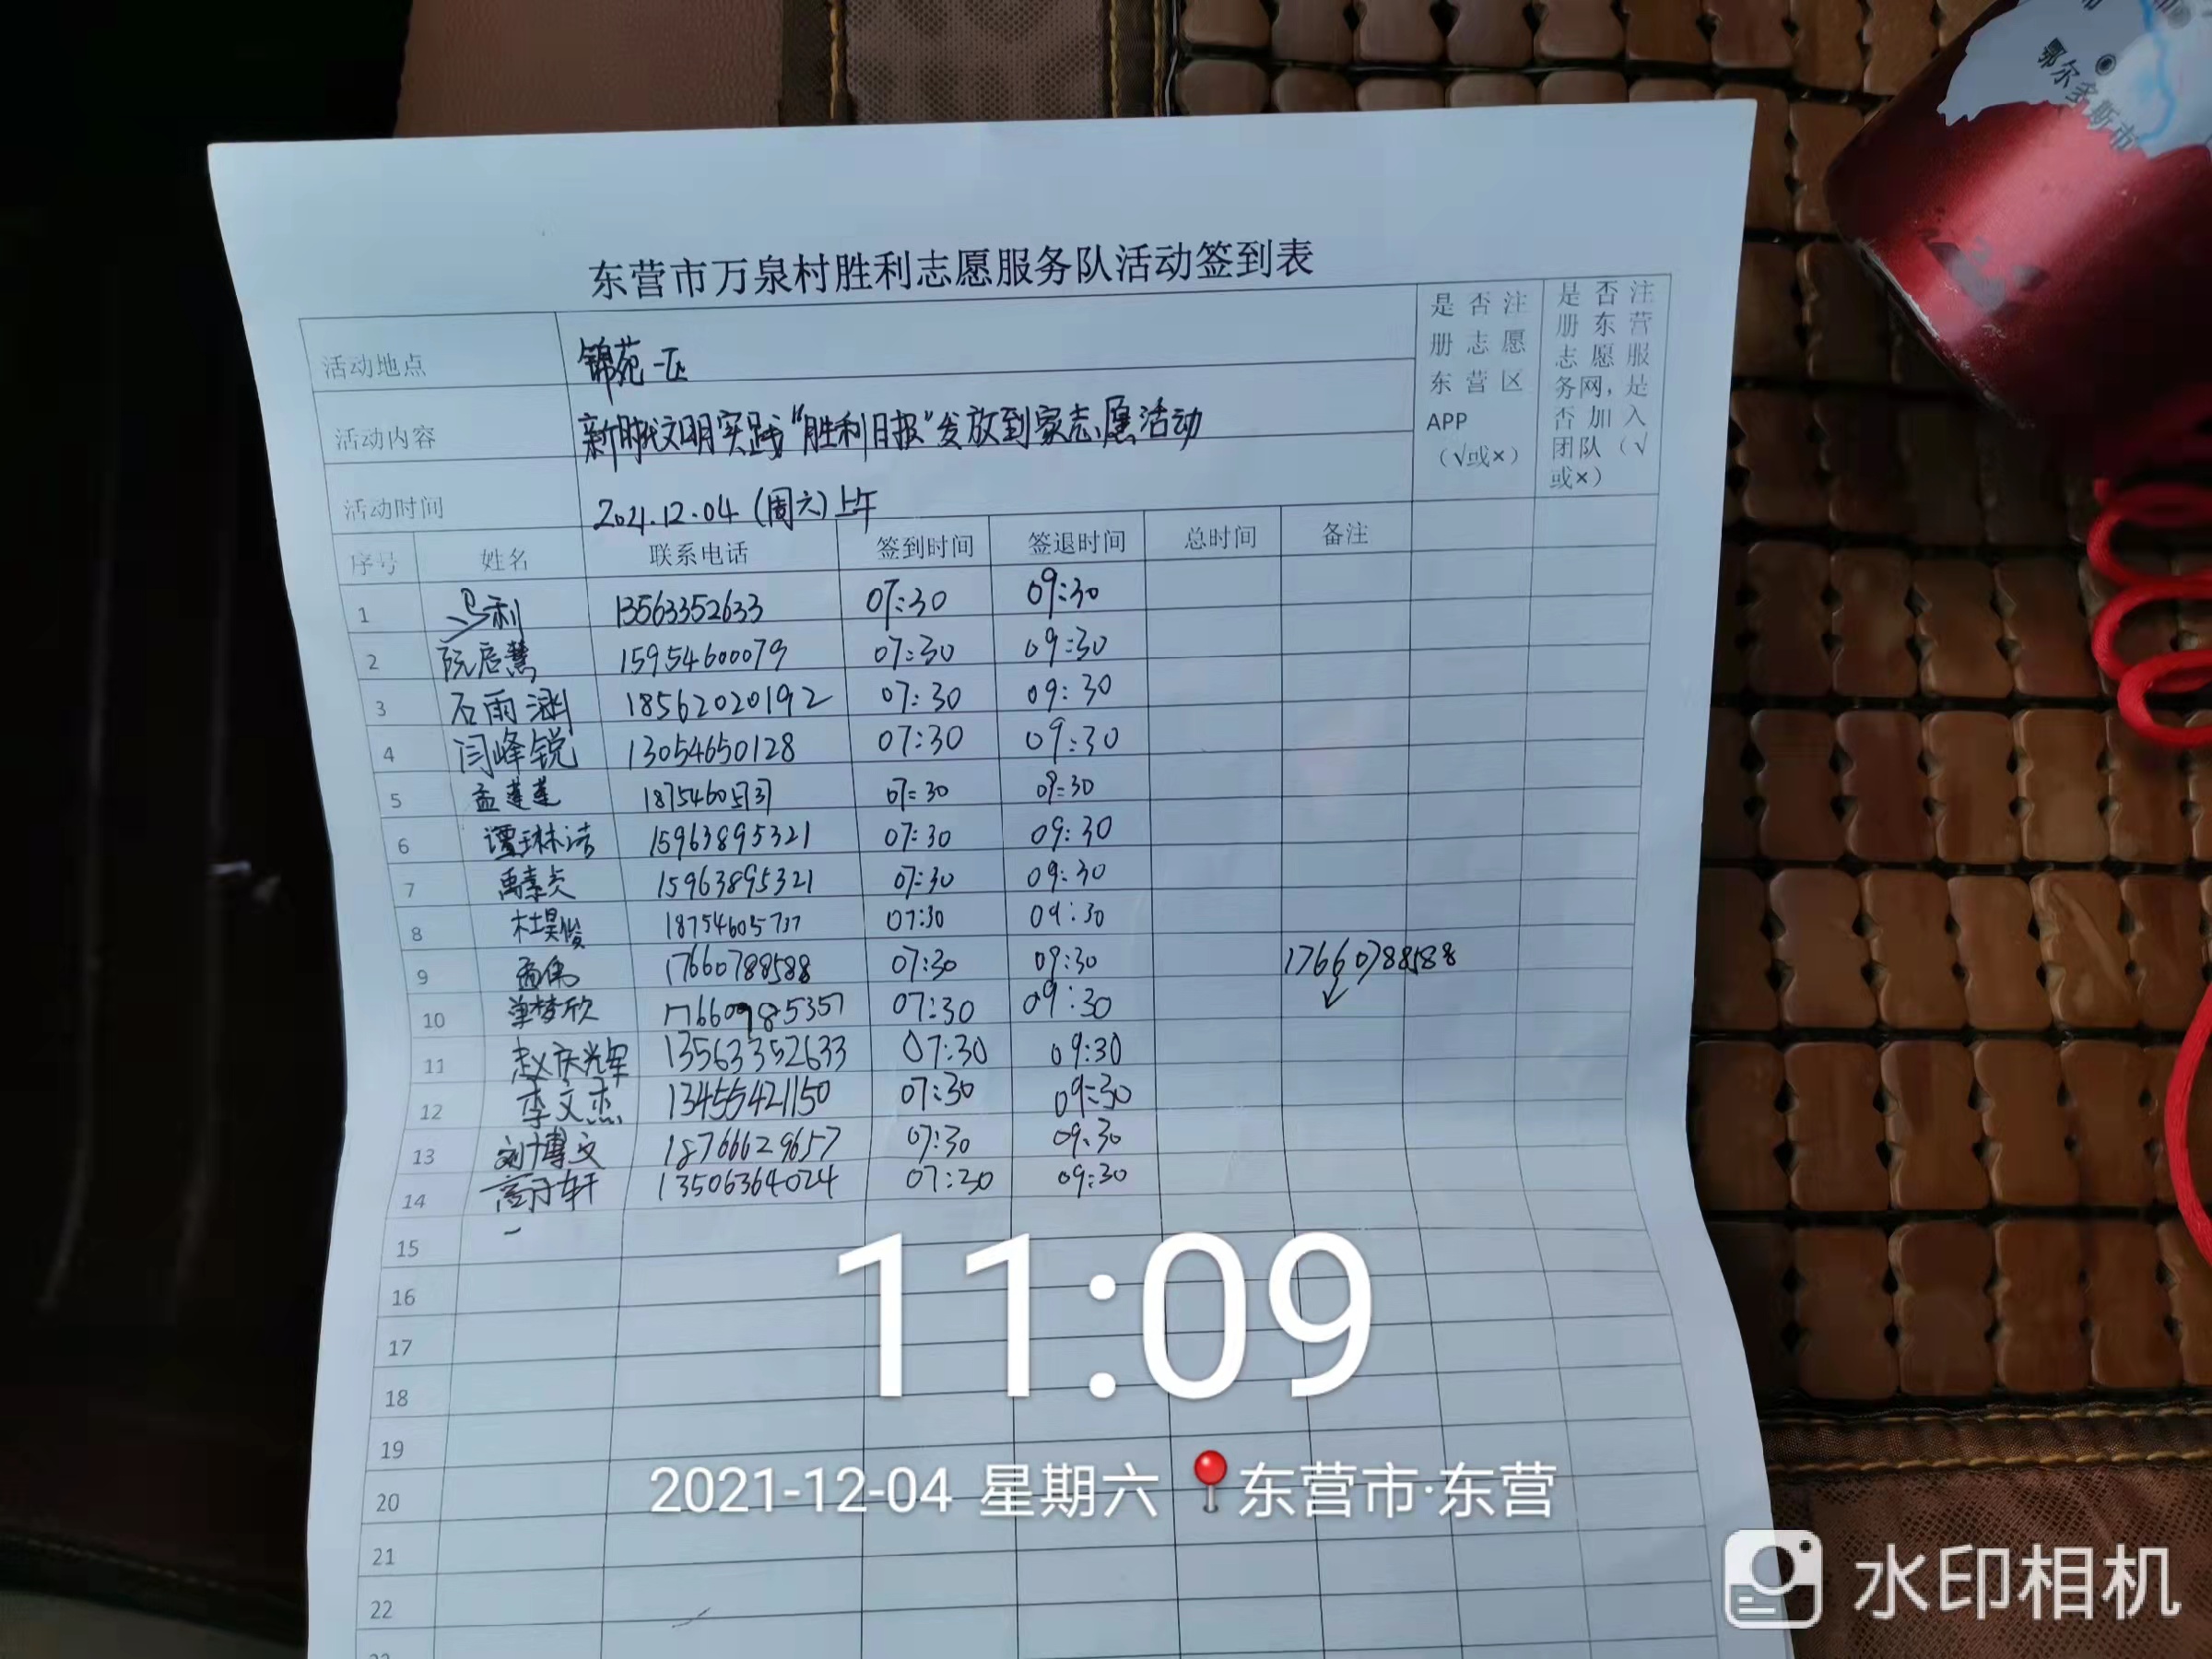 鄂尔多斯市
东营市万泉村胜利志愿服务队活动签到表
活动地点 锦苑一区
是否注册志愿东营区APP（√或×）
是否注册东营志愿服务网，是否加入团队（√或×）
活动内容 新时代文明实践“胜利日报”发放到家志愿活动
活动时间 2021.12.04 (周六) 上午
序号 姓名 联系电话 签到时间 签退时间 总时间 备注
1 利 13563352633 07:30 09:30
2 阮启慧 15954600079 07:30 09:30
3 石雨涵 18562020192 07:30 09:30
4 闫峰锐 13054650128 07:30 09:30
5 孟莲莲 18754605737 07:30 09:30
6 谭琳洁 15963895321 07:30 09:30
7 禹素贞 15963895321 07:30 09:30
8 杜昊俊 18754605737 07:30 09:30
9 孟伟 17660788588 07:30 09:30 17660788588
10 单梦欣 17660985357 07:30 09:30
11 赵庆光军 13563352633 07:30 09:30
12 李文杰 13455421150 07:30 09:30
13 刘博文 18766629657 07:30 09:30
14 高子轩 13506364024 07:30 09:30
15
16
17
18
19
20
21
22
23
11:09
2021-12-04 星期六 东营市·东营
水印相机